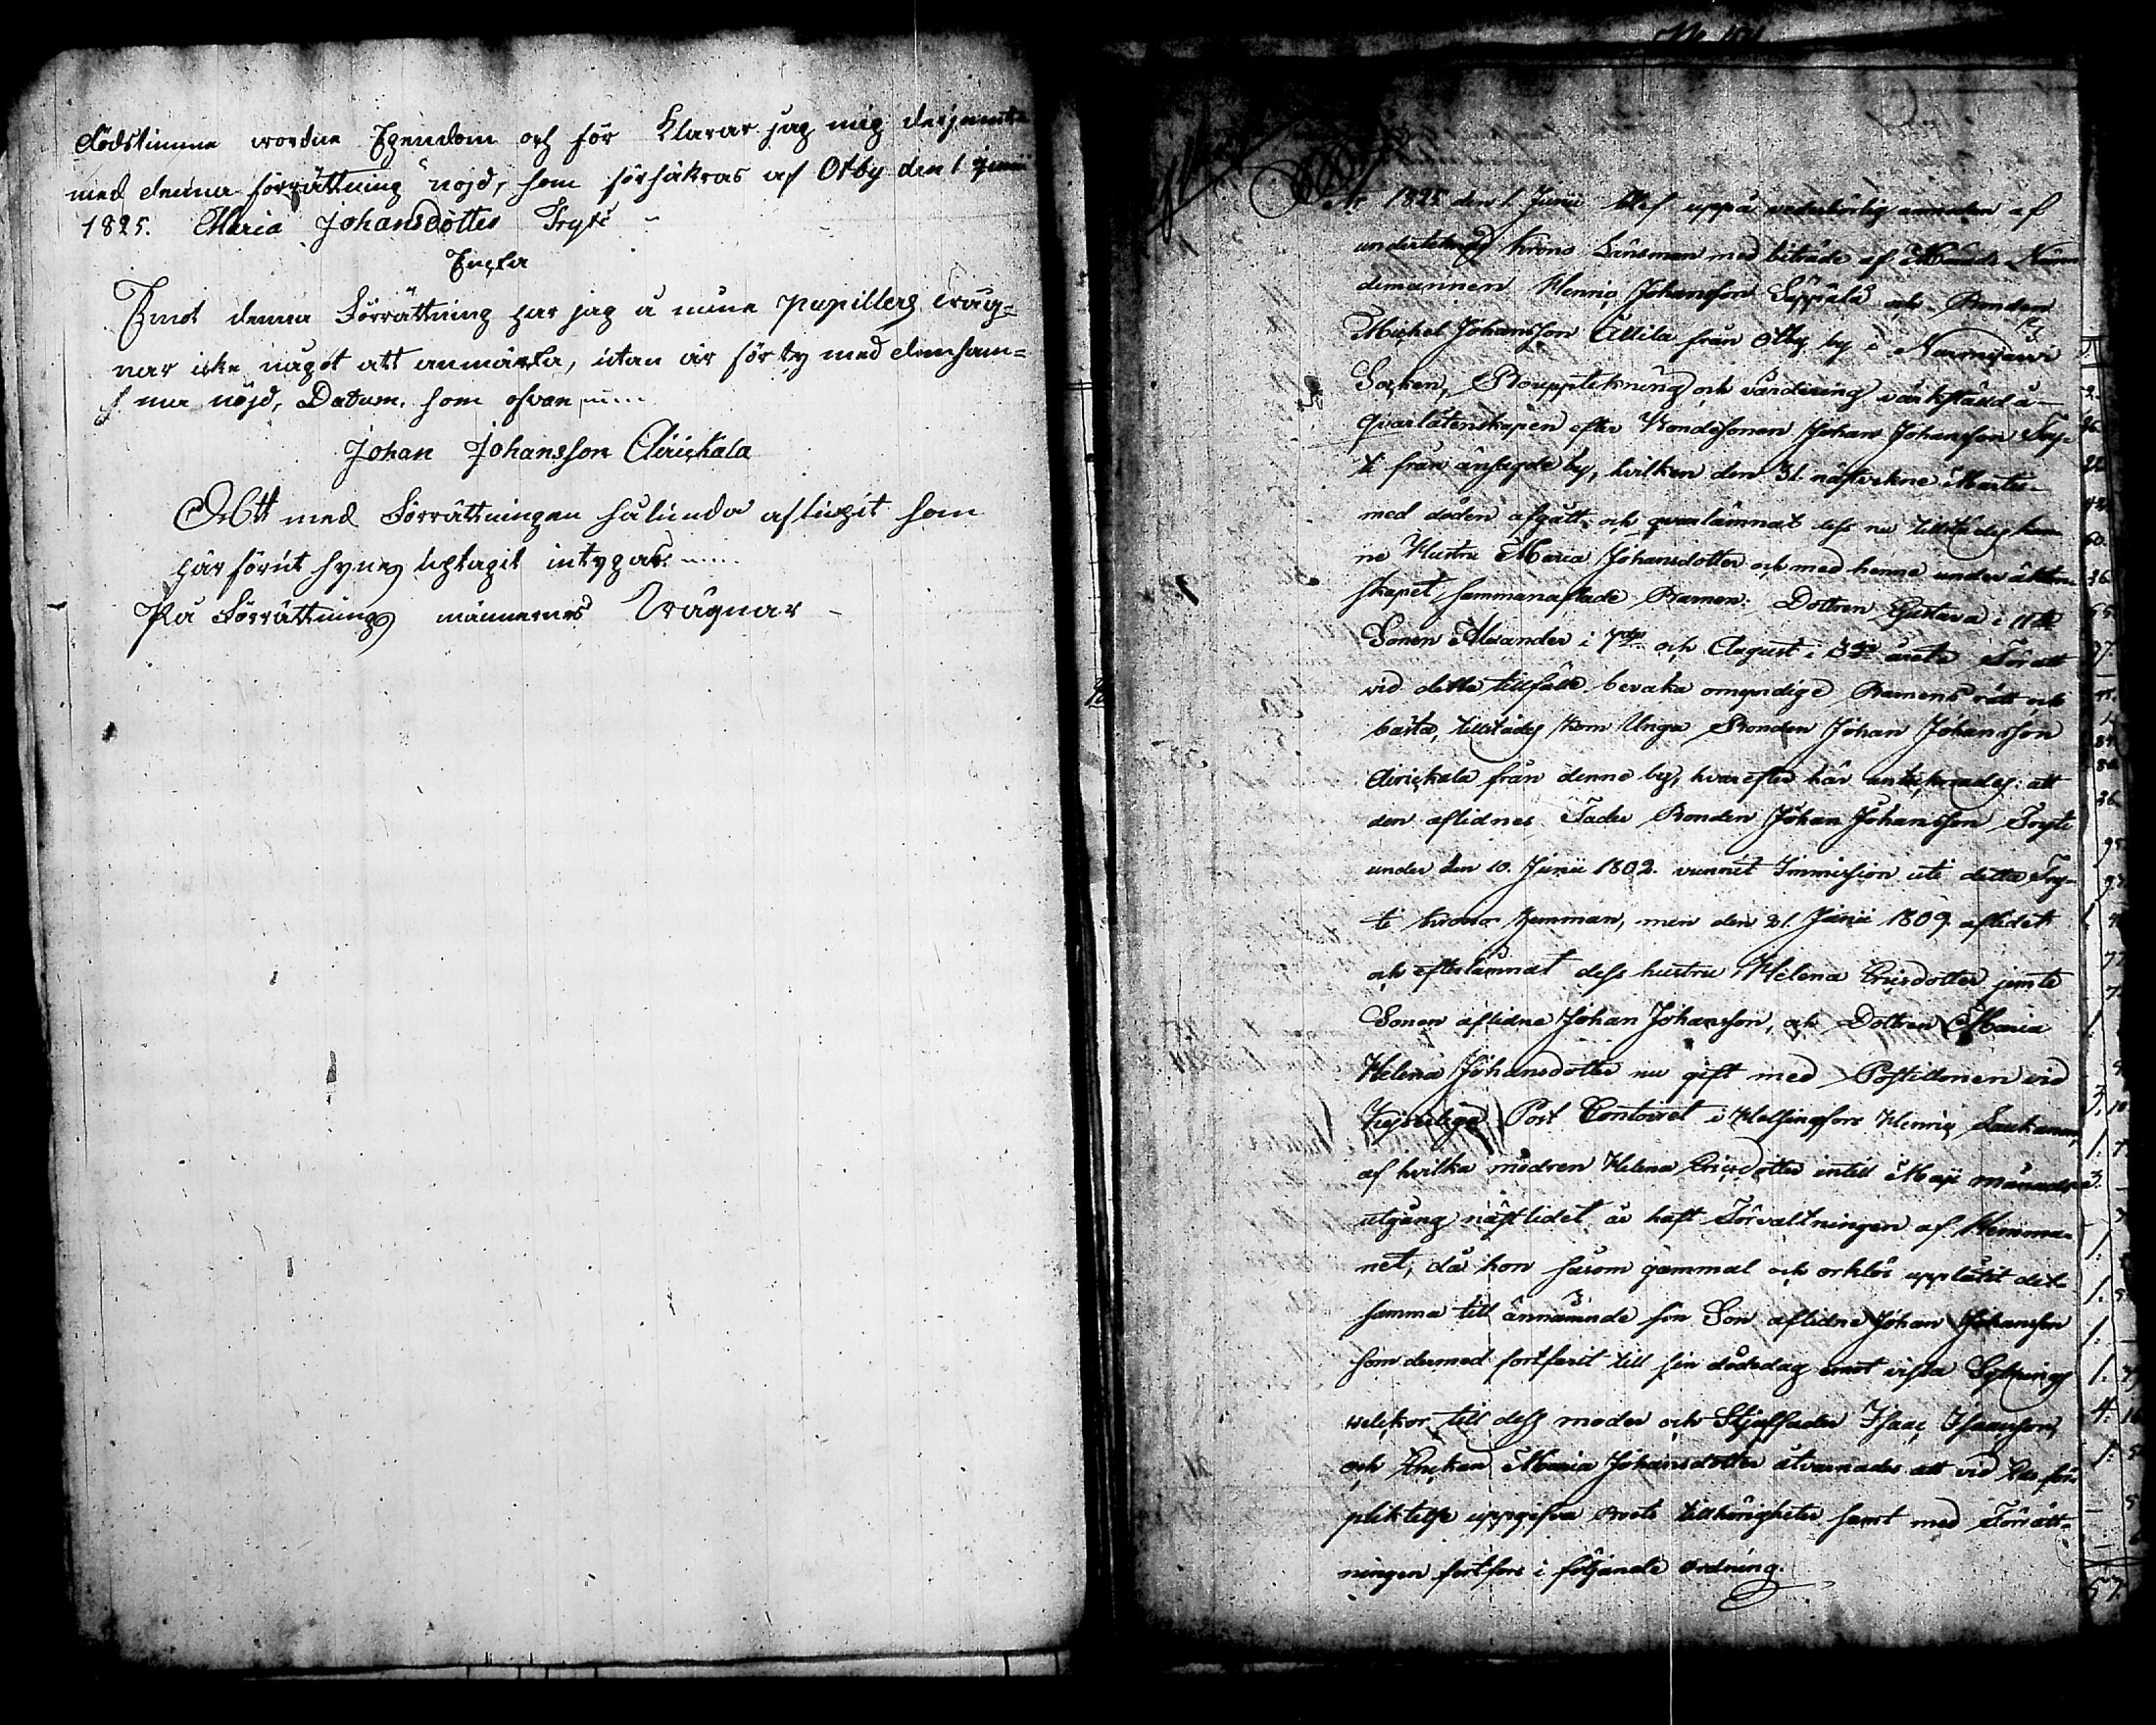 dödstimma wordne Egendom och för klarar jag mig derjemte
med denna förrättning nöjd, som försäkras af Otby den 1 Junii
1825. Maria Johansdotter Fryti
Enka
Emot denna Förrättning har jag å mine pupillers wäg-
nar icke något att anmärka, utan är förty med densam-
ma nöjd, Datum, som ofvan
Johan Johansson Clirickala
Att med Förrättningen sålunda aflupit som
här förut synes uptagit intygas.
På Förrättnings männernes Wägnar
År 1825 den 1. Junii blef uppå vederbörlig anmodan af
undertecknad Krono Länsman med biträde af Härads Nämn
demannen Henric Johansson Seppälä och Bonden
Michel Johansson Allila från Otby by i Nurmijärvi
Socken, Bouppteckning och värdering värkställd å
Qvarlåtenskapen efter Bondesonen Johan Johansson Fry-
ti från ansagde by, hvilken den 31. nästvekne Martii
med döden afgått, och qvarlämnat dess nu tillstädes kom
ne Hustru Maria Johansdotter och med henne under äkten
skapet sammanaflade Barnen: Dottren Gustava i 11te
Sonen Alexander i 7de och August i 3dje årets För att
vid detta tillfälle bevaka omyndige Barnens rätt och
bästa, tillstädes kom Unga Bonden Johan Johansson
Clirickala från denne by, hvarefter här antecknades: att
den aflidnes Fader Bonden Johan Johansson Fryti
under den 10. Junii 1802. vunnit Immission uti detta Fry-
ti Krono Hemman, men den 21. Junii 1809 aflidet
och efterlämnat dess hustru Helena Ericsdotter jemte
Sonen aflidne Johan Johansson, och Dottren Maria
Helena Johansdotter nu gift med Postillonen vid
Kejserliga Post Contoiret i Helsingfors Henric
af hvilka modren Helena Ericsdotter intill Maji månads
utgång nästlidet år haft Förvaltningen af Hemma-
net, då hon såsom gammal och orklös upplåtit det
samma till annämnde sin Son aflidne Johan Johansson
som dermed fortfarit till sin dödsdag emot vissa Sytnings
welckor till dess moder och Stjuffader Isaac Isaacsson,
och Enckan Maria Johansdotter åtvarnades att vid Eds för
pliktelse uppgifva Boets tillhörigheter samt med Förrätt-
ningen fortfors i följande ordning.